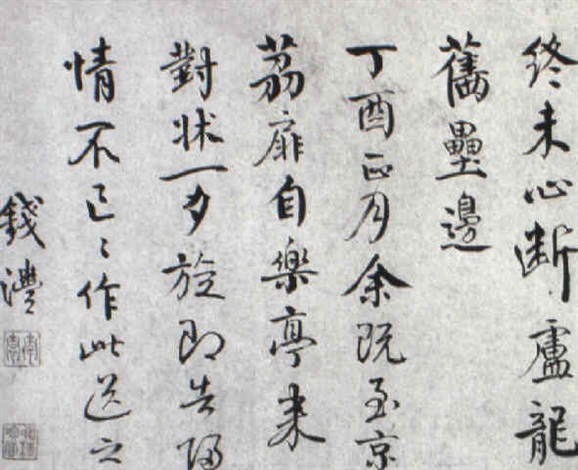 終未心斷盧龍
舊壘邊
丁酉正月余既至京
荔扉自樂亭来
對牀一夕旋即告歸
情不已〻作此送之
錢灃